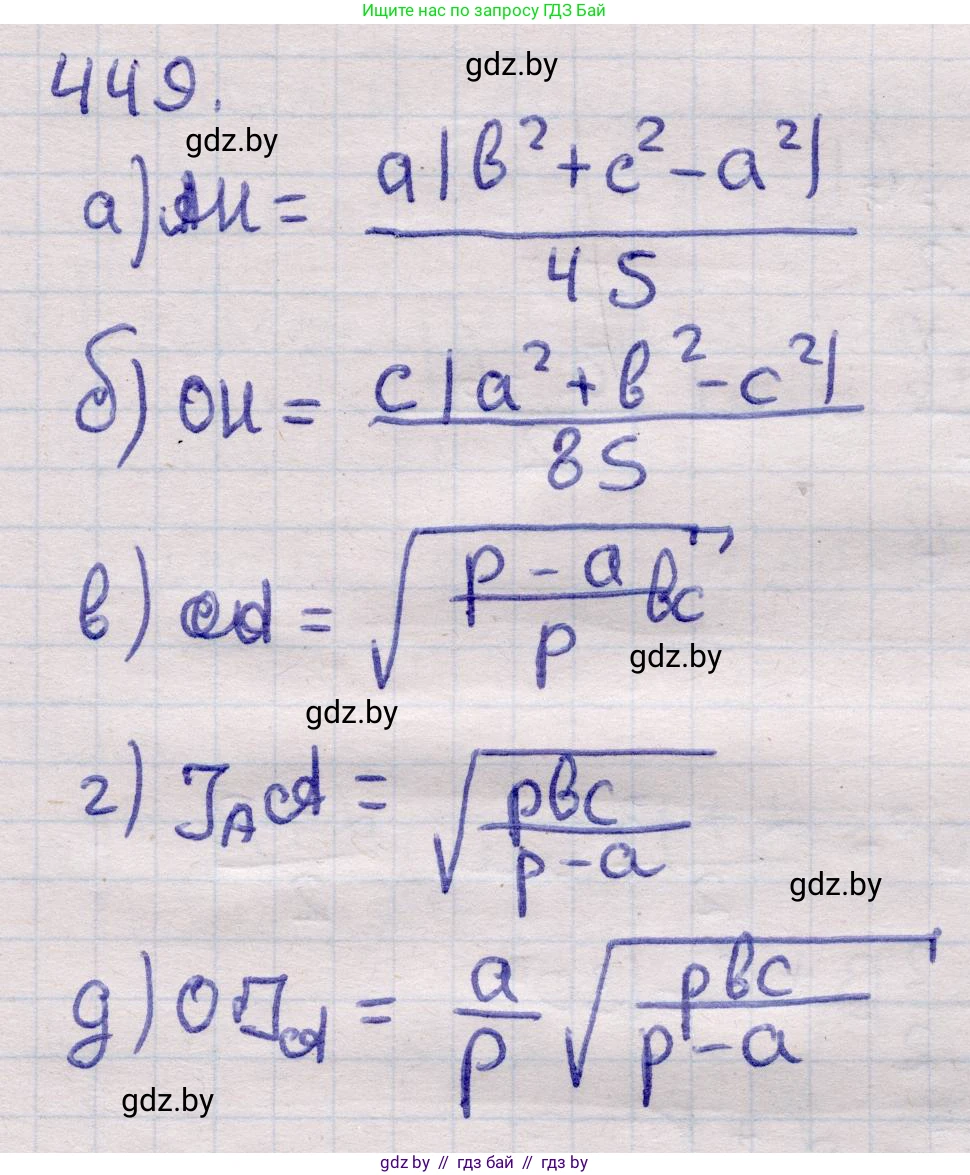 Ищите нас по запросу ГДЗ Бай
449.
gdz.by
gdz.by
а) AH = a|b² + c² - a²| / 4S
б) OH = c|a² + b² - c²| / 8S
в) = √((p - a)/p bc)
gdz.by
gdz.by
г) J_A A = √(pbc / (p - a))
gdz.by
д) OJ_A = a/p √(pbc / (p - a))
gdz.by
gdz.by // гдз бай // гдз by